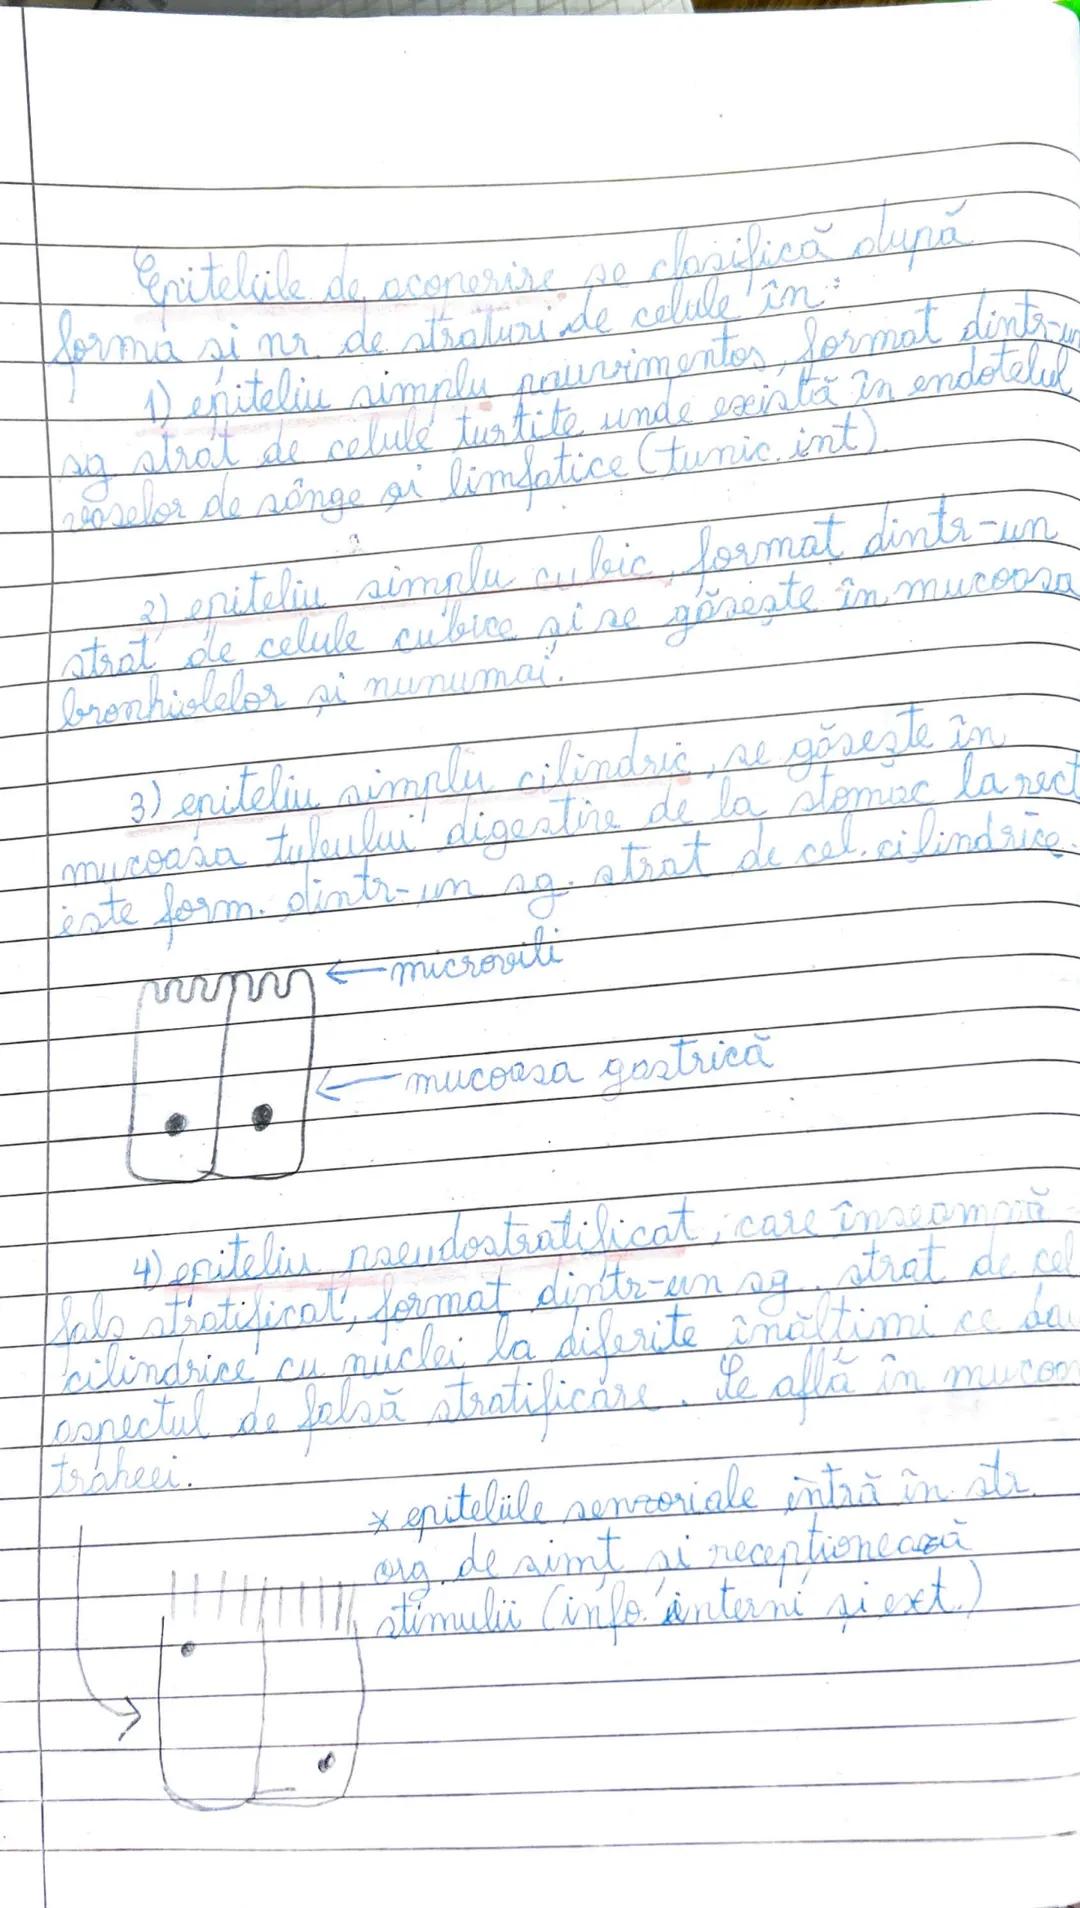 Epiteliile de acoperire se clasifică după
forma și nr. de straturi de celule în:
1) epiteliu simplu pauvimentos, format dintr-un
sg strat de celule turtite unde există în endotelul
vaselor de sânge și limfatice (tunic. int).
2) epiteliu simplu cubic, format dintr-un
strat de celule cubice și se găsește în mucoasa
bronhiolelor și nunumai.
3) epiteliu simplu cilindric, se găsește în
mucoasa tubului digestive de la stomac la rect
este form. dintr-un sg. strat de cel. cilindrice.
microvili
mucoasa gastrică
4) epiteliu pseudostratificat, care înseamnă
fals stratificat, format dintr-un sg. strat de cel
cilindrice cu nuclei la diferite înălțimi ce dau
aspectul de falsă stratificare. Se află în mucoas
traheei.
* epiteliile senzoriale intră în str.
org. de simț și recepționează
stimulii (info. interni și ext.)